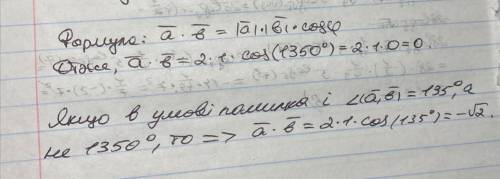 Формула: a̅ · b̅ = |a̅|·|b̅|·cosφ
Отже, a̅ · b̅ = 2·1·cos(1350°) = 2·1·0=0
Якщо в умові помилка і ∠(a̅,b̅) = 135°, а
не 1350°, то => a̅ · b̅ = 2·1·cos(135°)=-√2.